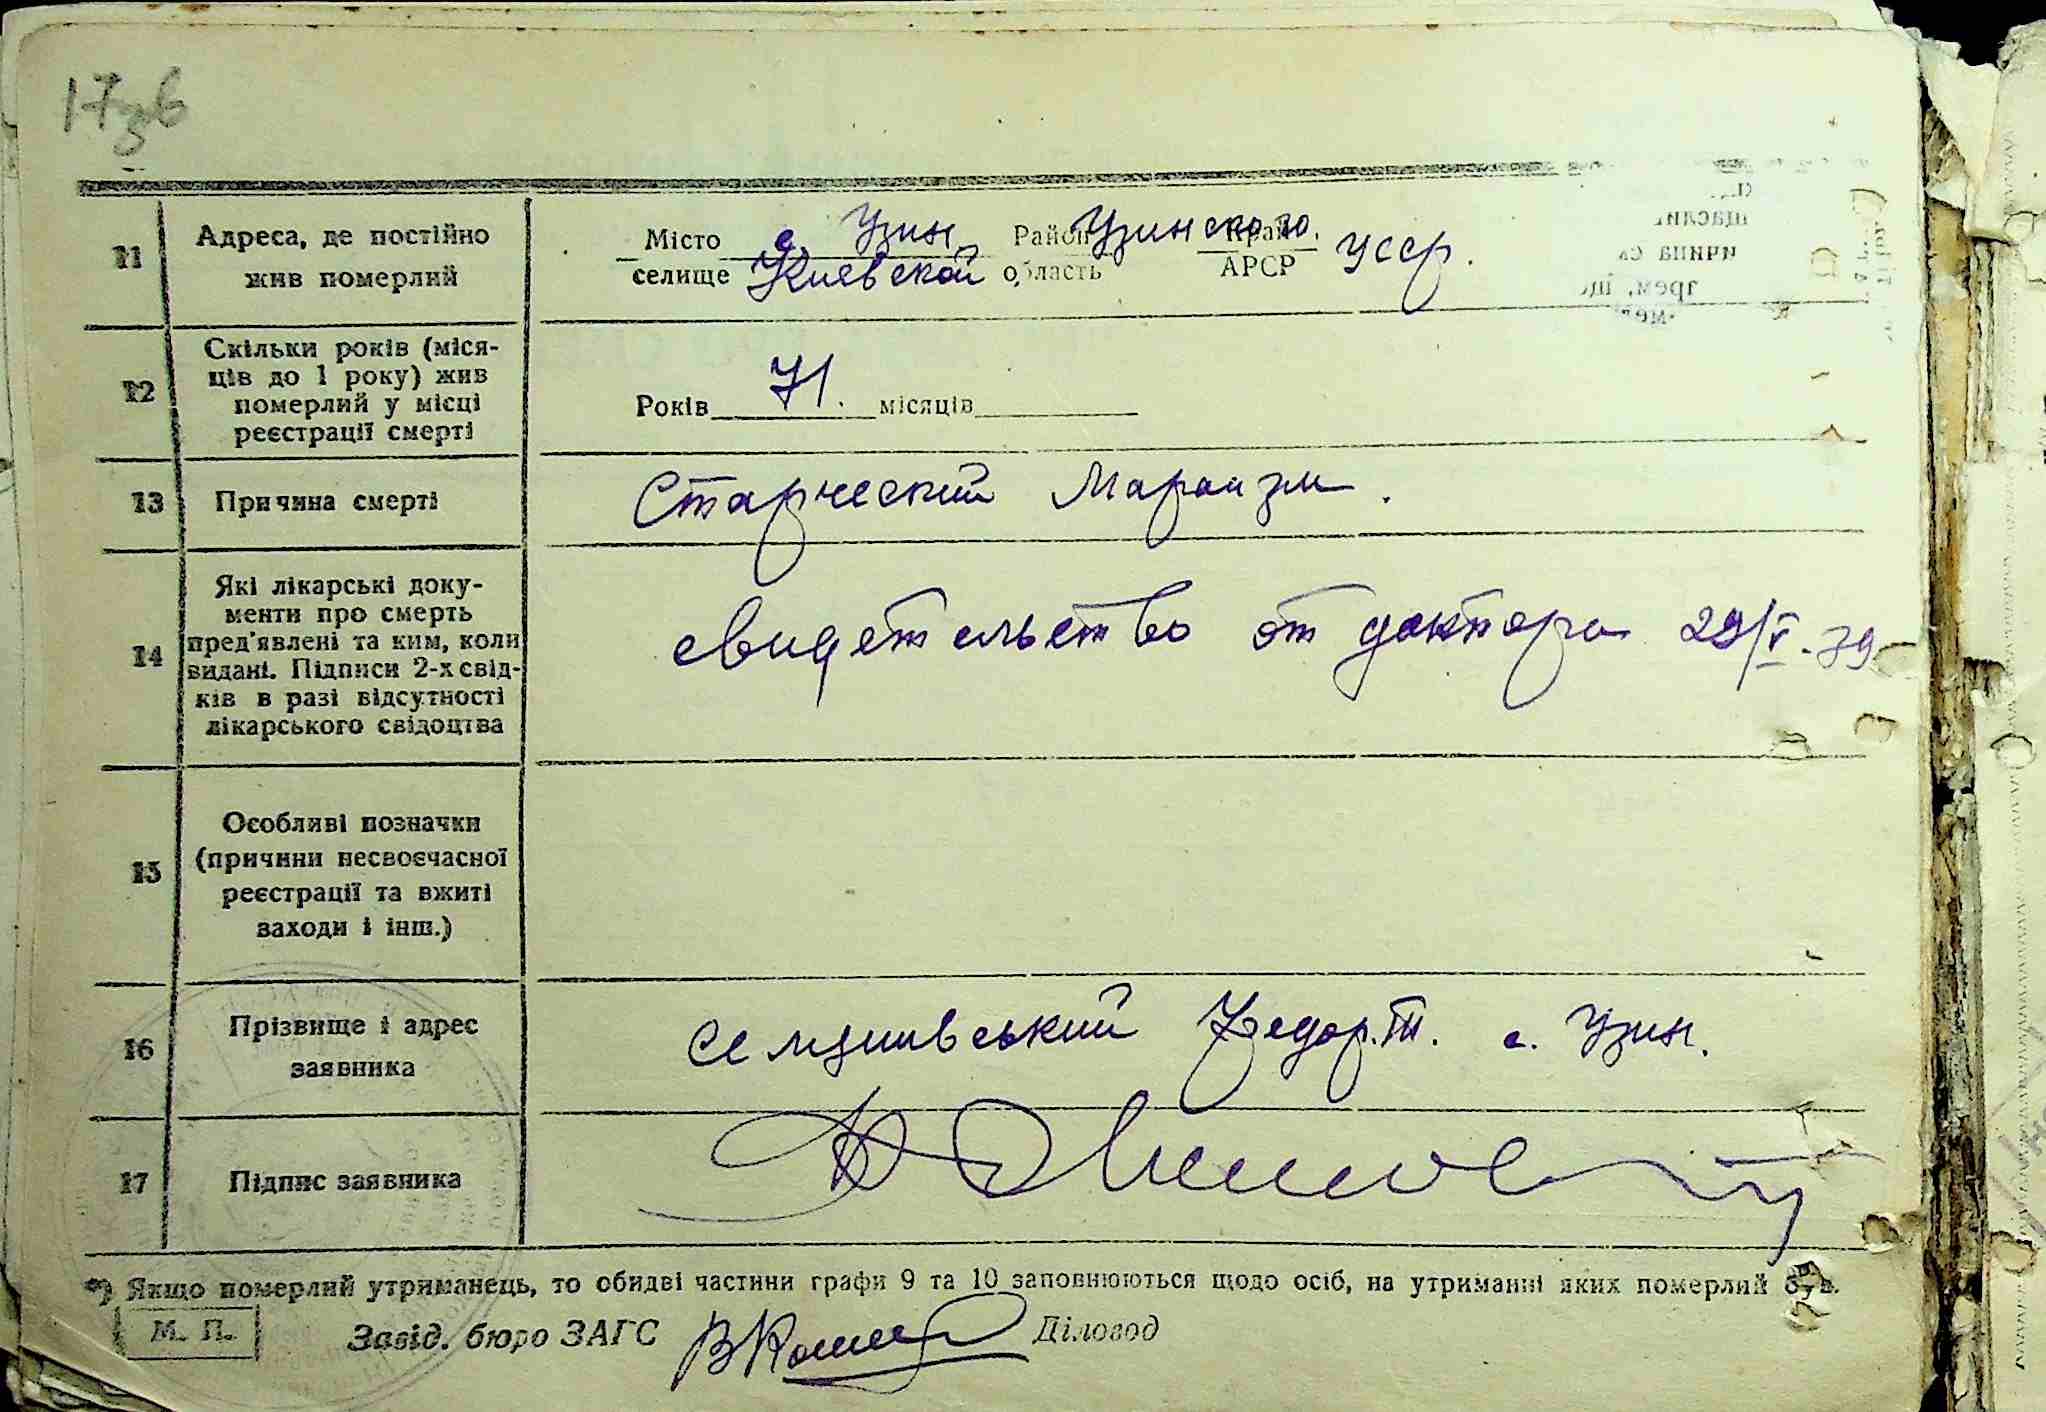 17зв
11 Адреса, де постійно жив померлий
Місто с. Узин Район Узинского Край УССР.
селище Киевской область АРСР
12 Скільки років (міся-
ців до 1 року) жив
померлий у місці
реєстрації смерті
Років 71. місяців
13 Причина смерті Старческий Маразм.
14 Які лікарські доку-
менти про смерть
пред'явлені та ким, коли
видані. Підписи 2-х свід-
ків в разі відсутності
лікарського свідоцтва
свидетельство от доктора 29/V.39
15 Особливі позначки
(причини несвоєчасної
реєстрації та вжиті
заходи і інш.)
16 Прізвище і адрес
заявника
Федор. Т. с. Узин.
17 Підпис заявника
*) Якщо померлий утриманець, то обидві частини графи 9 та 10 заповнюються щодо осіб, на утриманні яких померлий був.
М. П. Завід. бюро ЗАГС Діловод